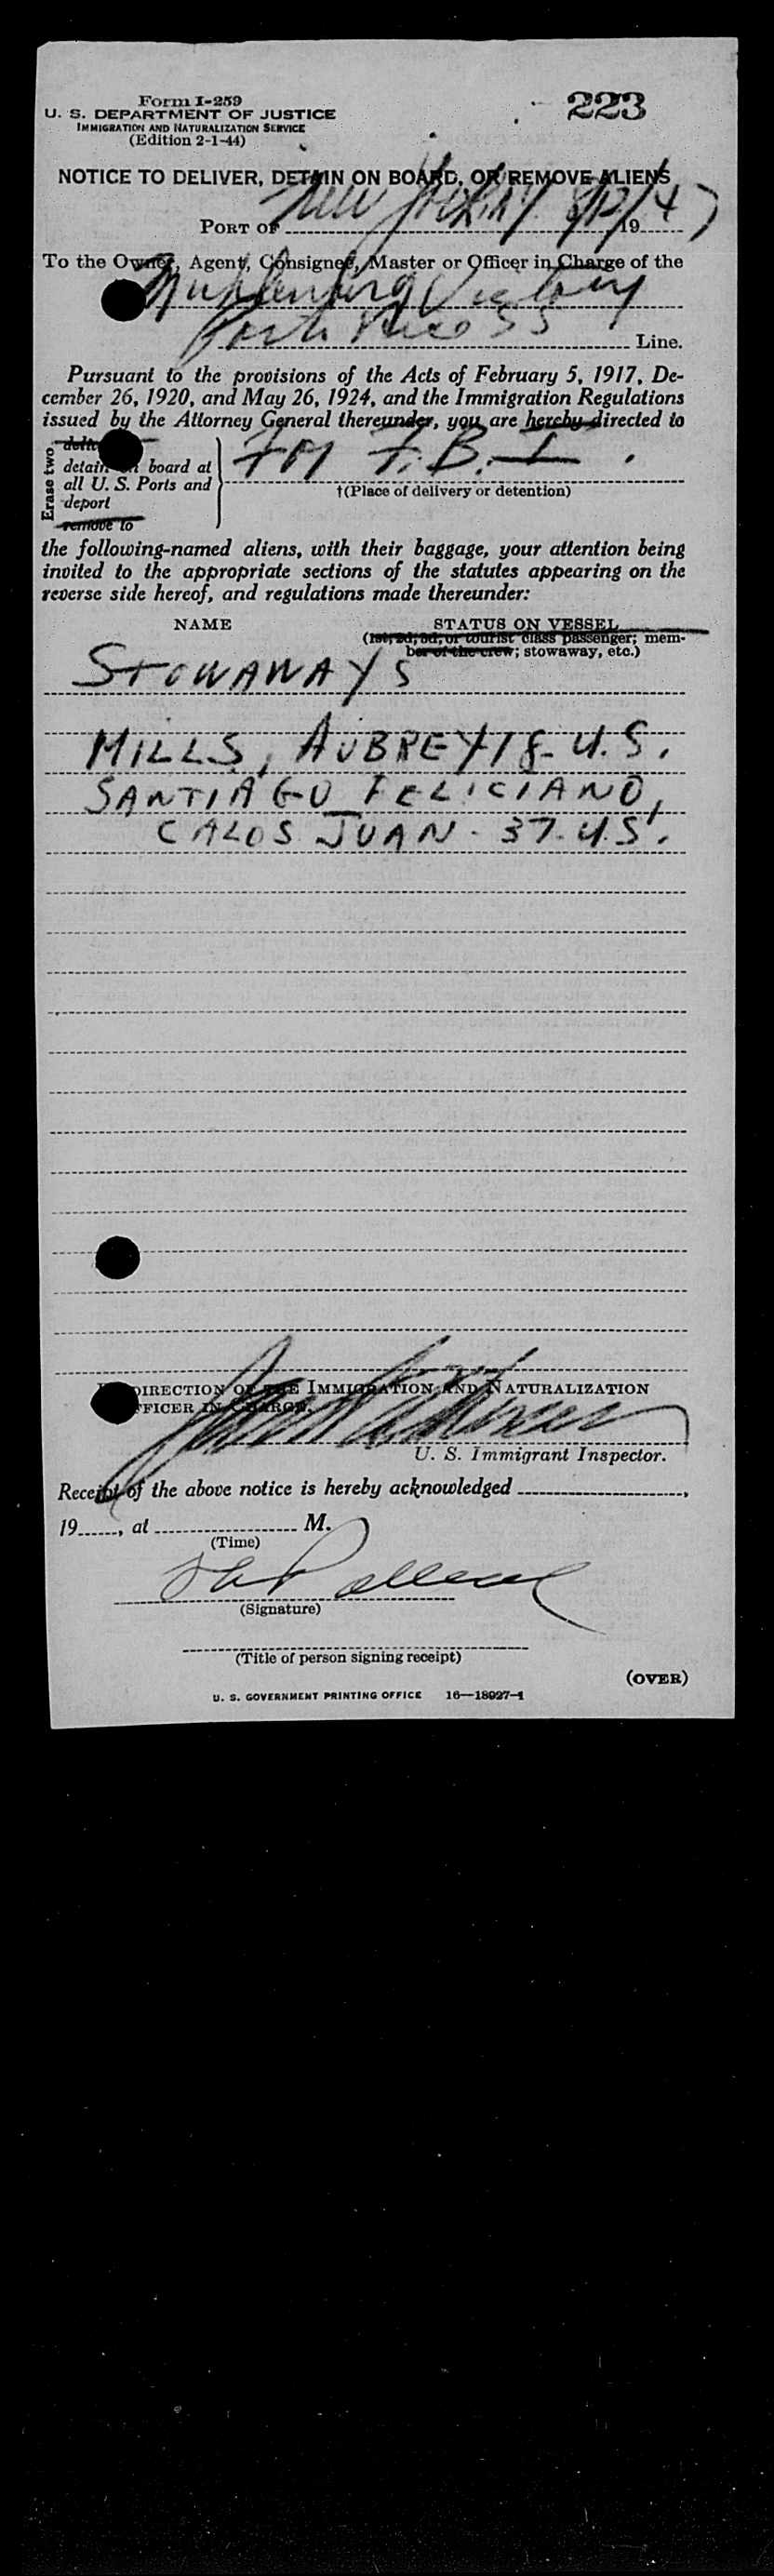 Form I-259
223
U. S. DEPARTMENT OF JUSTICE
IMMIGRATION AND NATURALIZATION SERVICE
(Edition 2-1-44)
NOTICE TO DELIVER, DETAIN ON BOARD, OR REMOVE ALIENS
PORT OF New York, N.Y. 8/12/1947
To the Owner, Agent, Consignee, Master or Officer in Charge of the
Muhlenberg Victory
Porto Rico SS Line.
Pursuant to the provisions of the Acts of February 5, 1917, De-
cember 26, 1920, and May 26, 1924, and the Immigration Regulations
issued by the Attorney General thereunder, you are hereby directed to
Erase two
detain on board at
all U. S. Ports and
deport
remove to
F.B.I.
†(Place of delivery or detention)
the following-named aliens, with their baggage, your attention being
invited to the appropriate sections of the statutes appearing on the
reverse side hereof, and regulations made thereunder:
NAME STATUS ON VESSEL
(1st, 2d, 3d, or tourist class passenger; mem-
ber of the crew; stowaway, etc.)
STOWAWAYS
MILLS, AUBREY 18-U.S.
SANTIAGO FELICIANO,
CALOS JUAN - 37-U.S.
DIRECTION OF THE IMMIGRATION AND NATURALIZATION
OFFICER IN CHARGE.
U. S. Immigrant Inspector.
Receipt of the above notice is hereby acknowledged ,
19 , at M.
(Time)
(Signature)
(Title of person signing receipt)
(OVER)
U. S. GOVERNMENT PRINTING OFFICE 16—18927-1